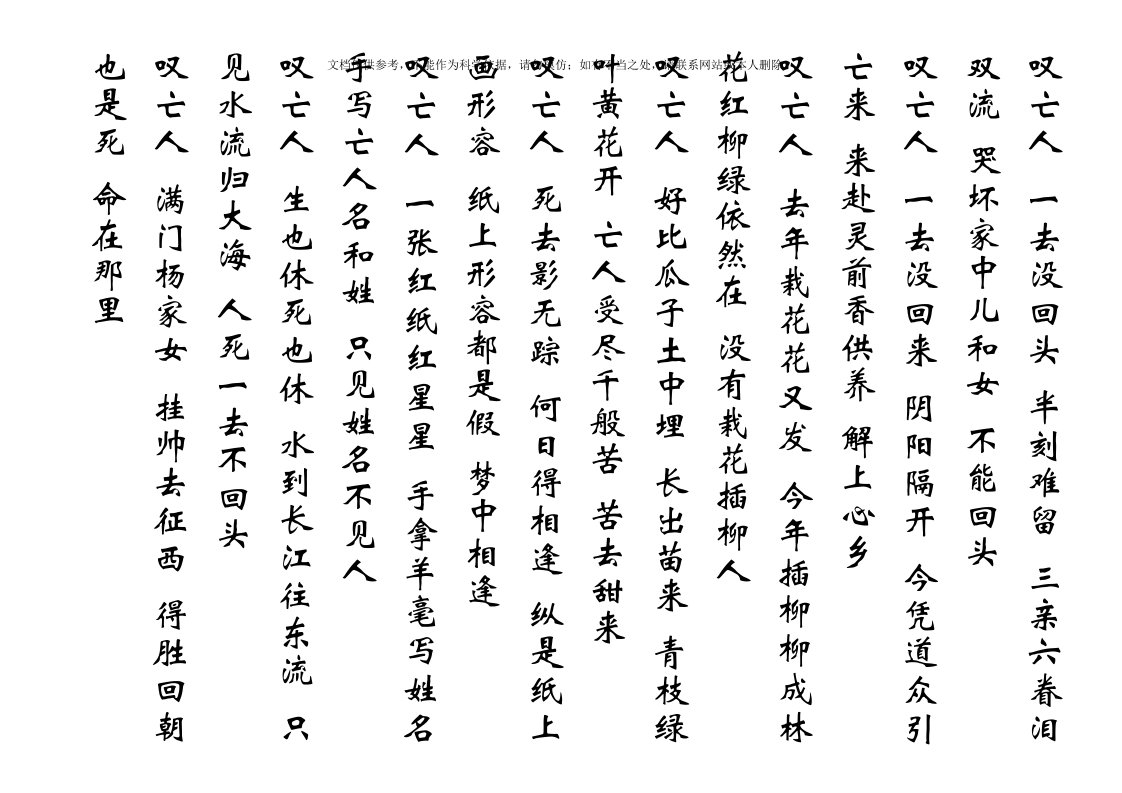 文档仅供参考，不能作为科学依据，请勿模仿；如有不当之处，请联系网站或本人删除。
叹亡人 一去没回头 半刻难留 三亲六眷泪
双流 哭坏家中儿和女 不能回头
叹亡人 一去没回来 阴阳隔开 今凭道众引
亡来 来赴灵前香供养 解上心乡
叹亡人 去年栽花花又发 今年插柳柳成林
花红柳绿依然在 没有栽花插柳人
叹亡人 好比瓜子土中埋 长出苗来 青枝绿
叶黄花开 亡人受尽千般苦 苦去甜来
叹亡人 死去影无踪 何日得相逢 纵是纸上
画形容 纸上形容都是假 梦中相逢
叹亡人 一张红纸红星星 手拿羊毫写姓名
手写亡人名和姓 只见姓名不见人
叹亡人 生也休死也休 水到长江往东流 只
见水流归大海 人死一去不回头
叹亡人 满门杨家女 挂帅去征西 得胜回朝
也是死 命在那里